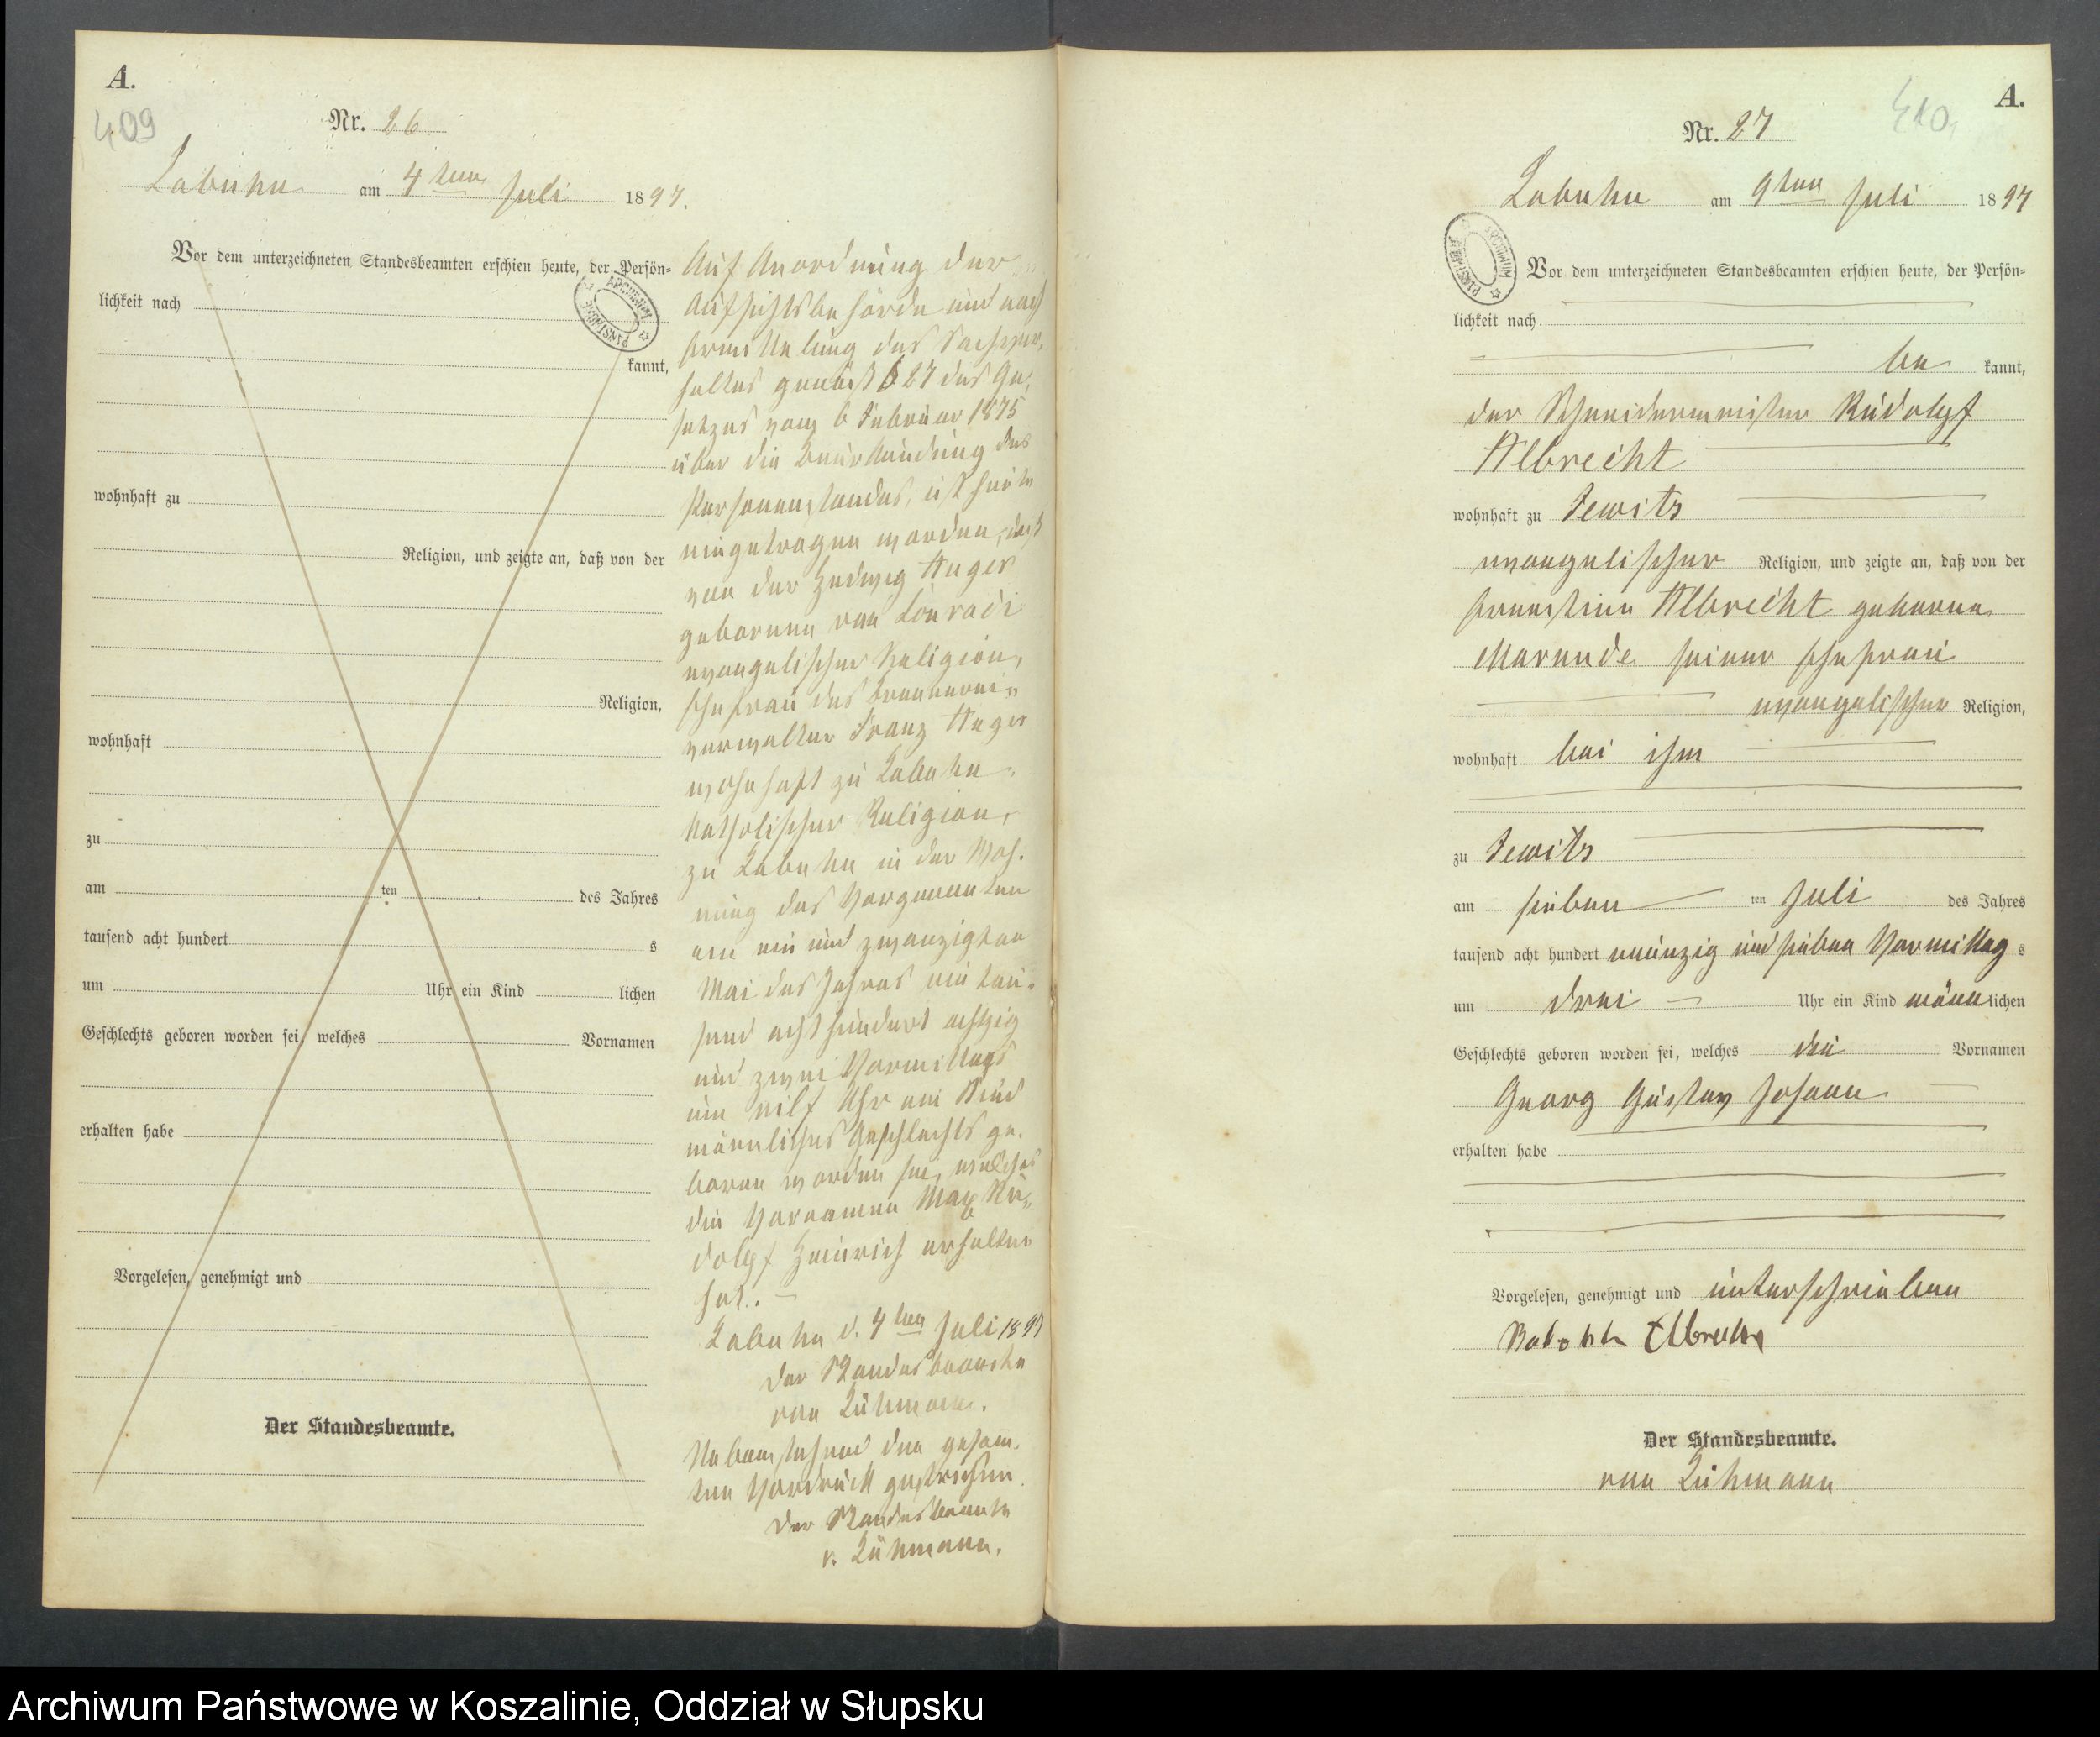 A.
409
Nr. 26
Labuhn am 4ten Juli 1897.
Vor dem unterzeichneten Standesbeamten erschien heute, der Persön=
lichkeit nach
kannt,
wohnhaft zu
Religion, und zeigte an, daß von der
Religion,
wohnhaft
zu
am ten des Jahres
tausend acht hundert s
um Uhr ein Kind lichen
Geschlechts geboren worden sei, welches Vornamen
erhalten habe
Vorgelesen, genehmigt und
Der Standesbeamte.
Auf Anordnung der
Aufsichtsbehörde und nach
Ermittelung des Sachver,
haltes gemäß § 27 des Ge,
setzes vom 6 Februar 1875
über die Beurkundung des
Personenstandes, ist heute
eingetragen worden, daß
von der Hedwig Hager
geborenen von Conradi
evangelischer Religion,
Ehefrau des Brennerei=
verwalter Franz Hager
wohnhaft zu Labuhn,
katholischer Religion,
zu Labuhn in der Woh.
nung des Vorgenannten
am ein und zwanzigten
Mai des Jahres ein tau=
send acht hundert achtzig
und zwei Vormittags
um eilf Uhr ein Kind
männliches Geschlechts ge.
boren worden sei, welches
die Vornamen Max Ru=
dolpf Heinrich erhalten
hat. —
Labuhn d. 4ten Juli 1897
Der Standesbeamte
von Lühmann.
Nebenstehend den gesam.
ten Vordruck gestrichen.
Der Standesbeamte
v. Lühmann.
A.
410
Nr. 27
Labuhn am 9ten Juli 1897
Vor dem unterzeichneten Standesbeamten erschien heute, der Persön=
lichkeit nach
be kannt,
der Schneidermeister Rudolpf
Albrecht
wohnhaft zu Jewitz
evangelischer Religion, und zeigte an, daß von der
Ernestine Albrecht geborene
Marunde seiner Ehefrau
evangelischer Religion,
wohnhaft bei ihm
zu Jewitz
am sieben ten Juli des Jahres
tausend acht hundert neunzig und sieben Vormittag s
um drei Uhr ein Kind männlichen
Geschlechts geboren worden sei, welches die Vornamen
Georg Gustav Johann
erhalten habe
Vorgelesen, genehmigt und unterschrieben
Albrecht
Der Standesbeamte.
von Lühmann
ARCHIWUM PAŃSTWOWE
Archiwum Państwowe w Koszalinie, Oddział w Słupsku